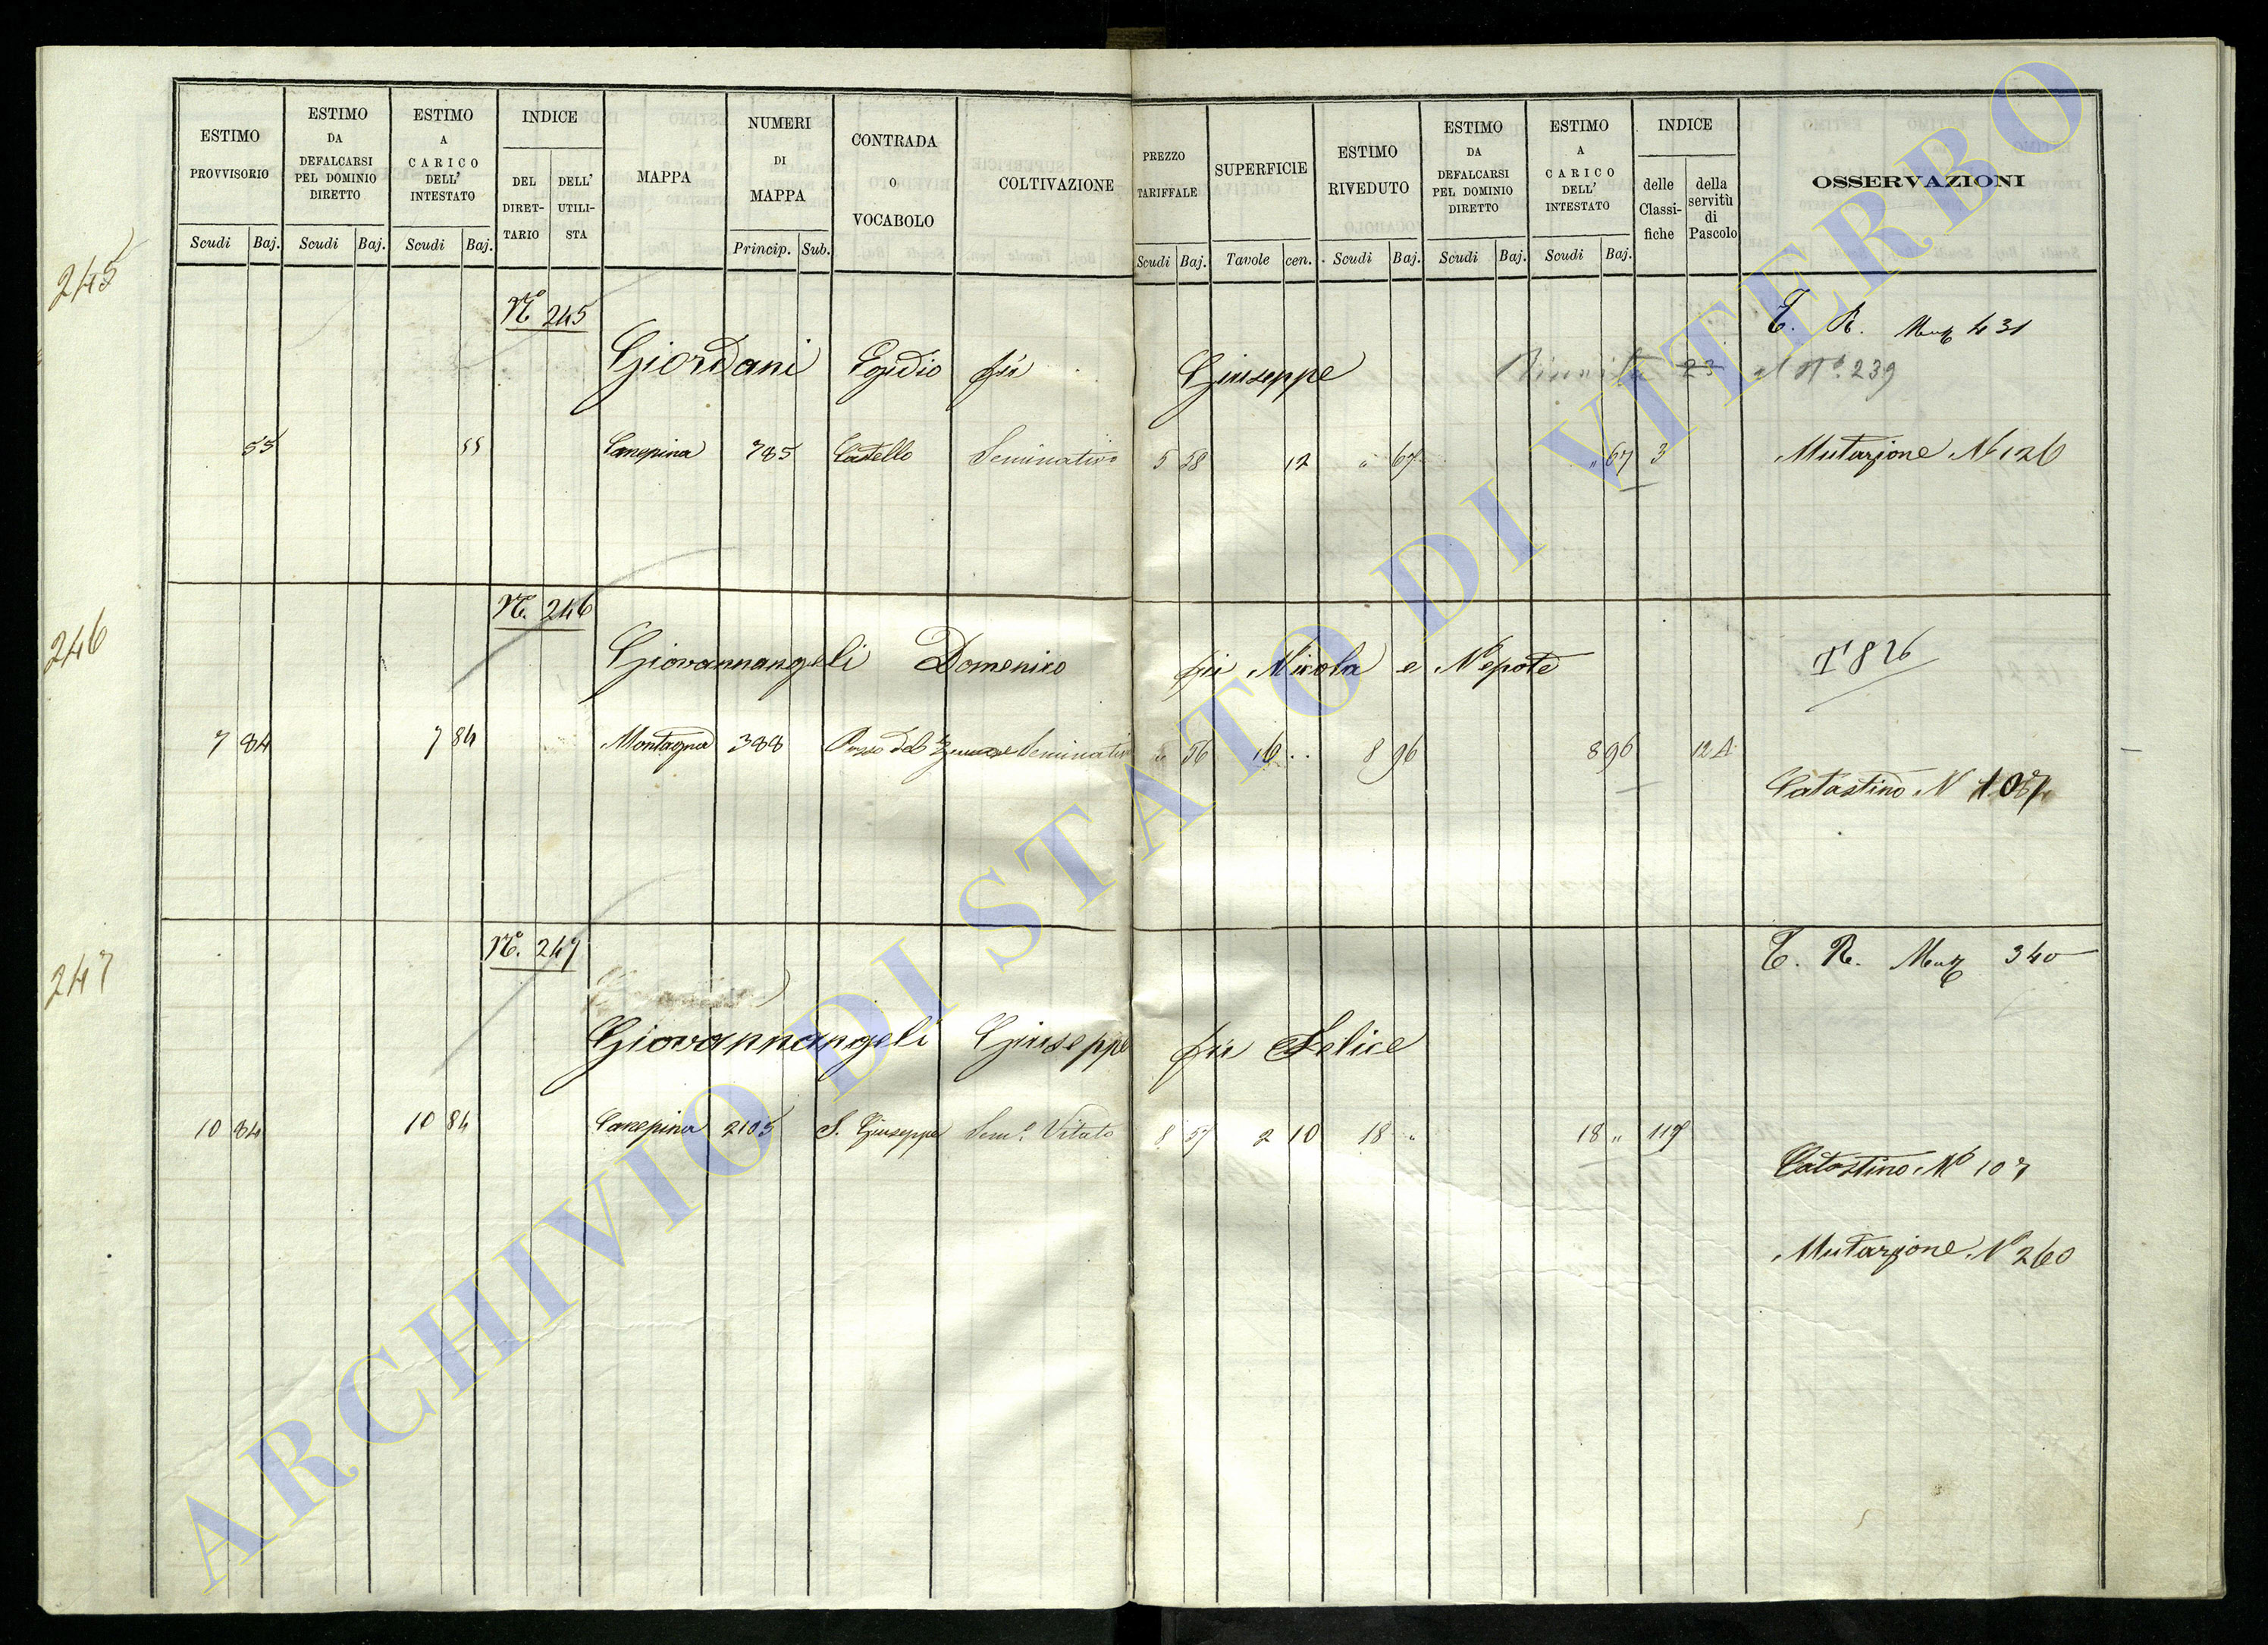 ESTIMO PROVVISORIO
Scudi Baj.
ESTIMO DA DEFALCARSI PEL DOMINIO DIRETTO
Scudi Baj.
ESTIMO A CARICO DELL' INTESTATO
Scudi Baj.
INDICE
DEL DIRET- TARIO
DELL' UTILI- STA
MAPPA
NUMERI DI MAPPA
Princip. Sub.
CONTRADA O VOCABOLO
COLTIVAZIONE
PREZZO TARIFFALE
Scudi Baj.
SUPERFICIE
Tavole cen.
ESTIMO RIVEDUTO
Scudi Baj.
ESTIMO DA DEFALCARSI PEL DOMINIO DIRETTO
Scudi Baj.
ESTIMO A CARICO DELL' INTESTATO
Scudi Baj.
INDICE
delle Classi- fiche
della servitù di Pascolo
OSSERVAZIONI
245
No 245
T. R. 431
Giordani Egidio fu Giuseppe
23 al No. 239
55 55 Canepina 785 Castello Seminativo 5 58 12 " 67 " 67 3 Mutazione N 126
246
No. 246
Giovannangeli Domenico fu Nicola e Nepote
T 826
7 84 7 84 Montagna 388 Seminativo 56 16 .. 8 96 8 96 12 A
Catastino N 107
247
No. 247
T. R. 340
Giovannangeli Giuseppe fu Felice
10 84 10 84 Canepina 2105 S. Giuseppe Semo. Vitato 8 57 2 10 18 " 18 " 117
Catastino No 107
Mutazione N 260
ARCHIVIO DI STATO DI VITERBO